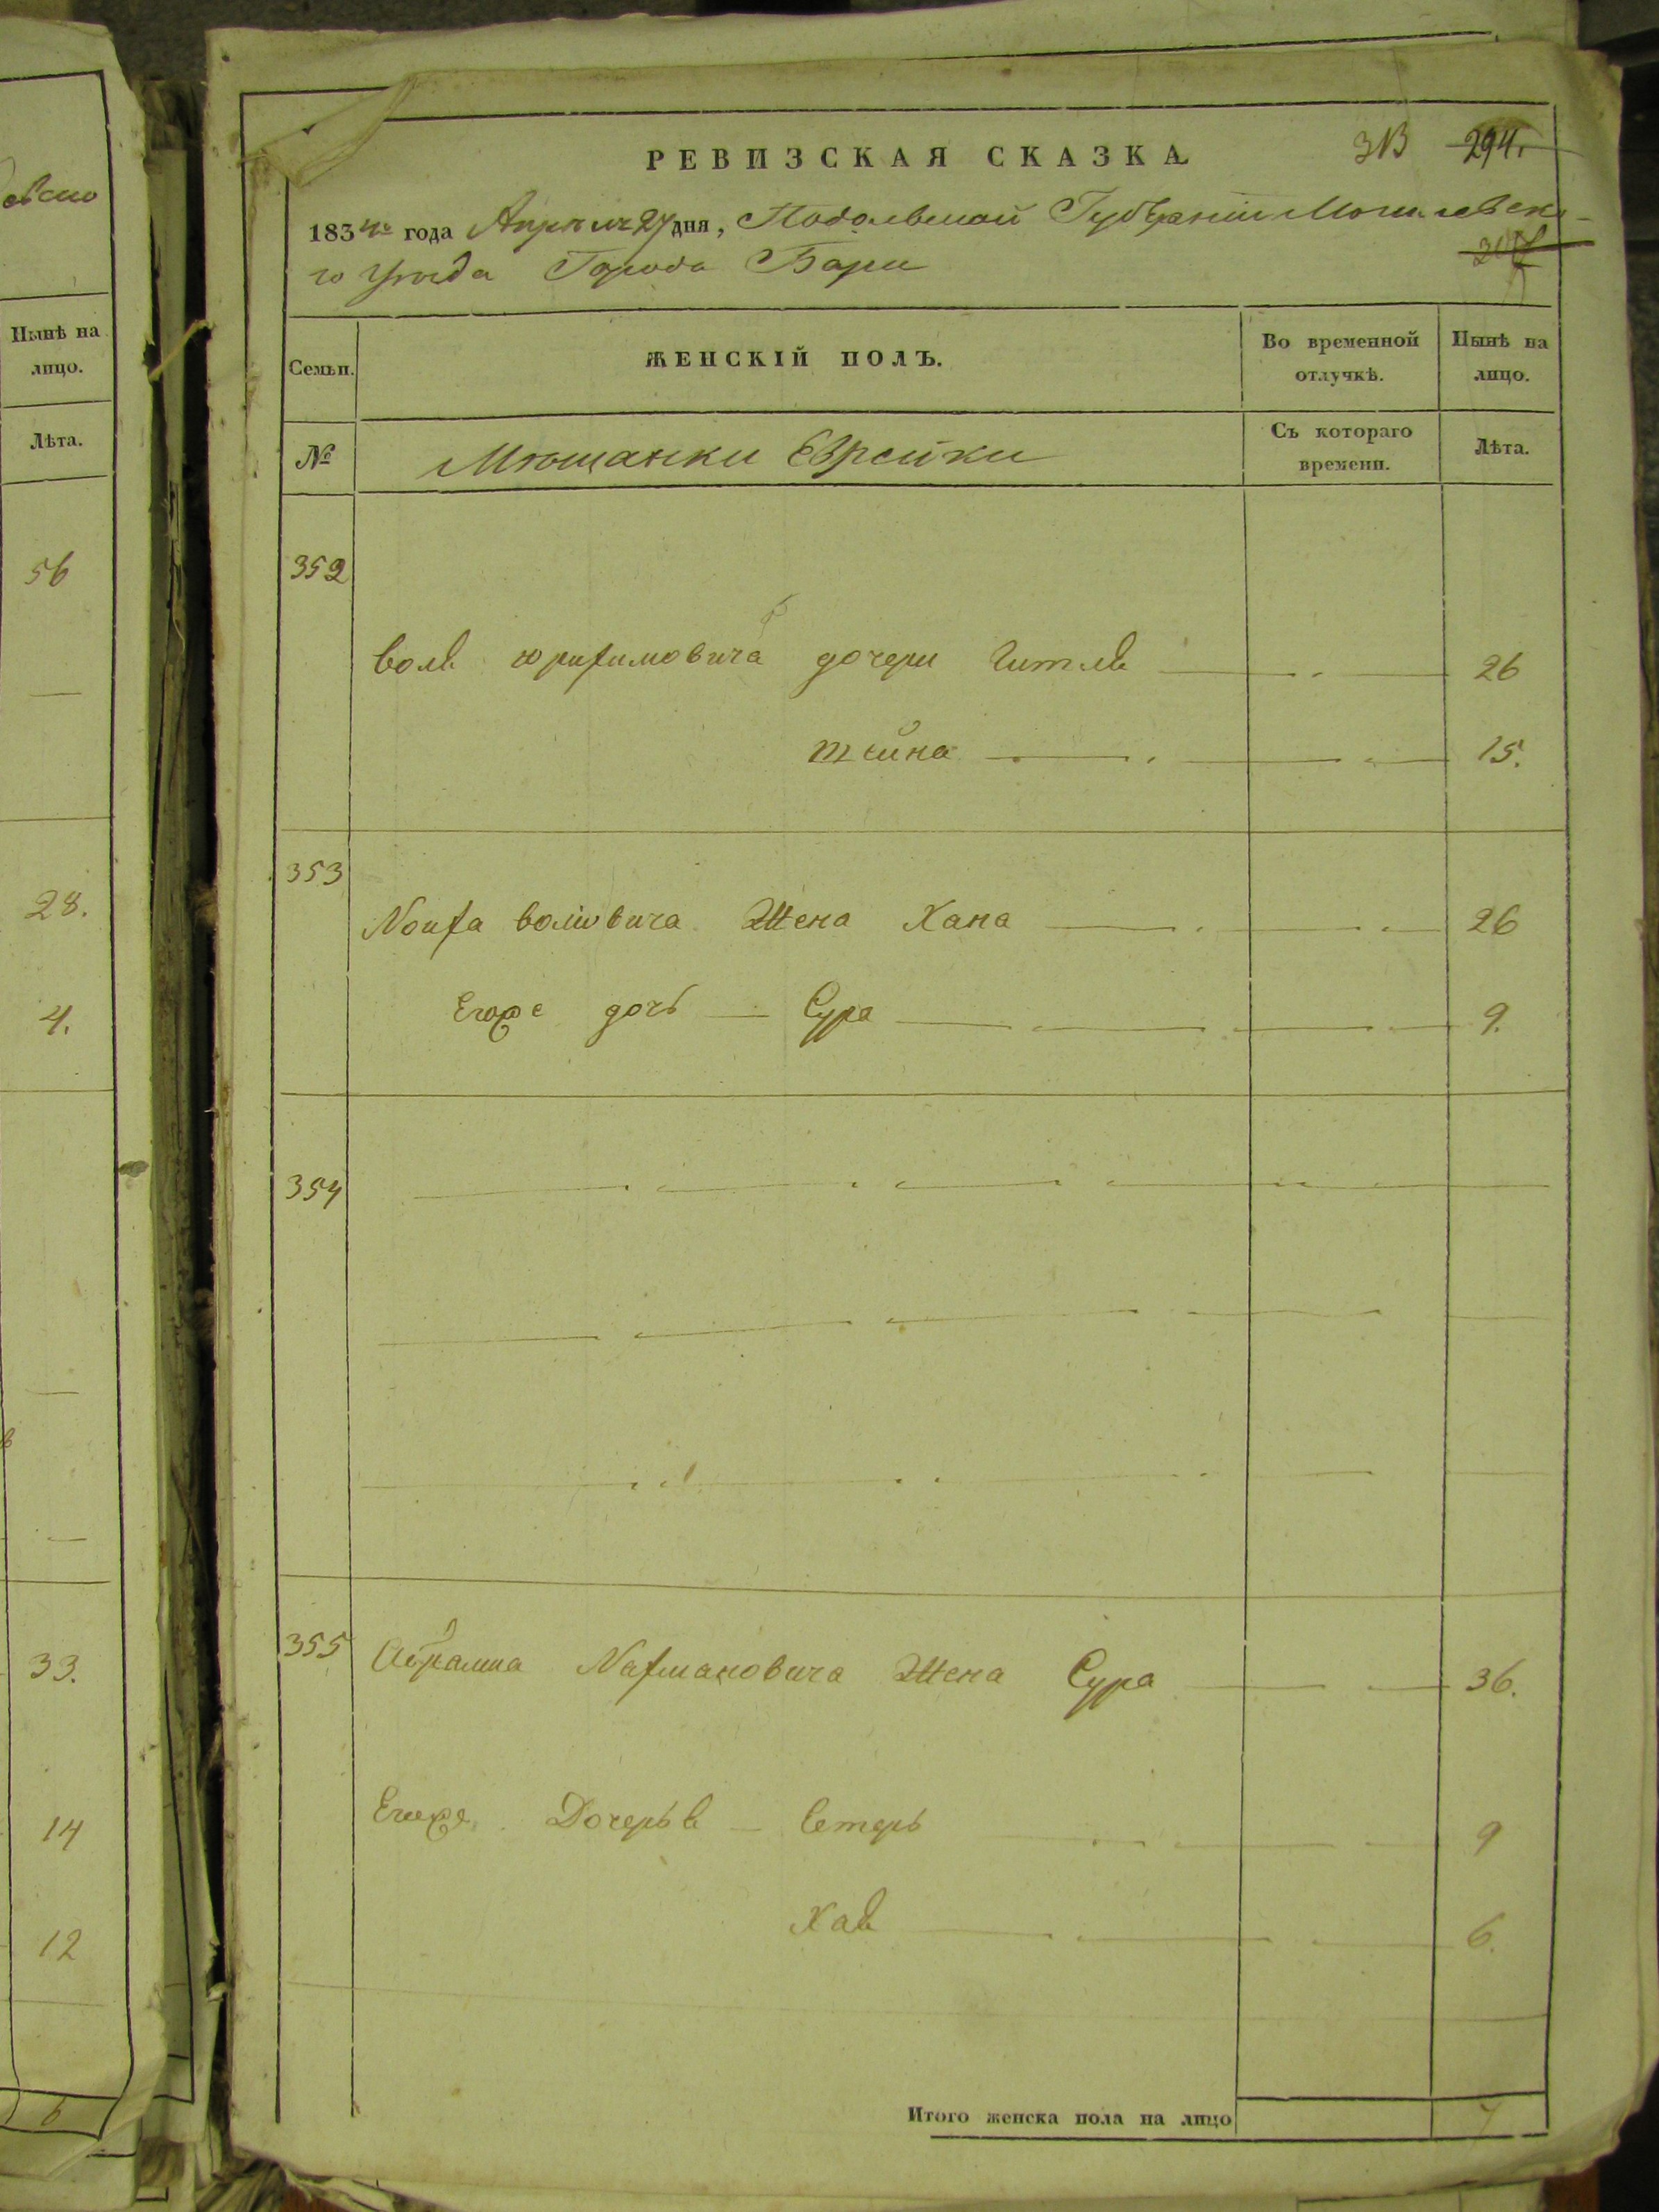 евско
Нынѣ на
лицо.
Лѣта.
56
28.
4.
33.
14
12
6
РЕВИЗСКАЯ СКАЗКА
313 294.
1834го года Апрѣля 27 дня, Подольской Губернiи Могилевска-
го Уѣзда Города Бара
Семьи.
ЖЕНСКІЙ ПОЛЪ.
Во временной
отлучкѣ.
Нынѣ на
лицо.
№
Мѣщанки Еврейки
Съ котораго
времени.
Лѣта.
352
дочери 26
тейна 15.
353
Жена Хана 26
Егоже дочь Сура 9.
354
355 Жена Сура 36.
Егоже Дочерьв Естерь 9
Хав 6.
Итого женска пола на лицо 7